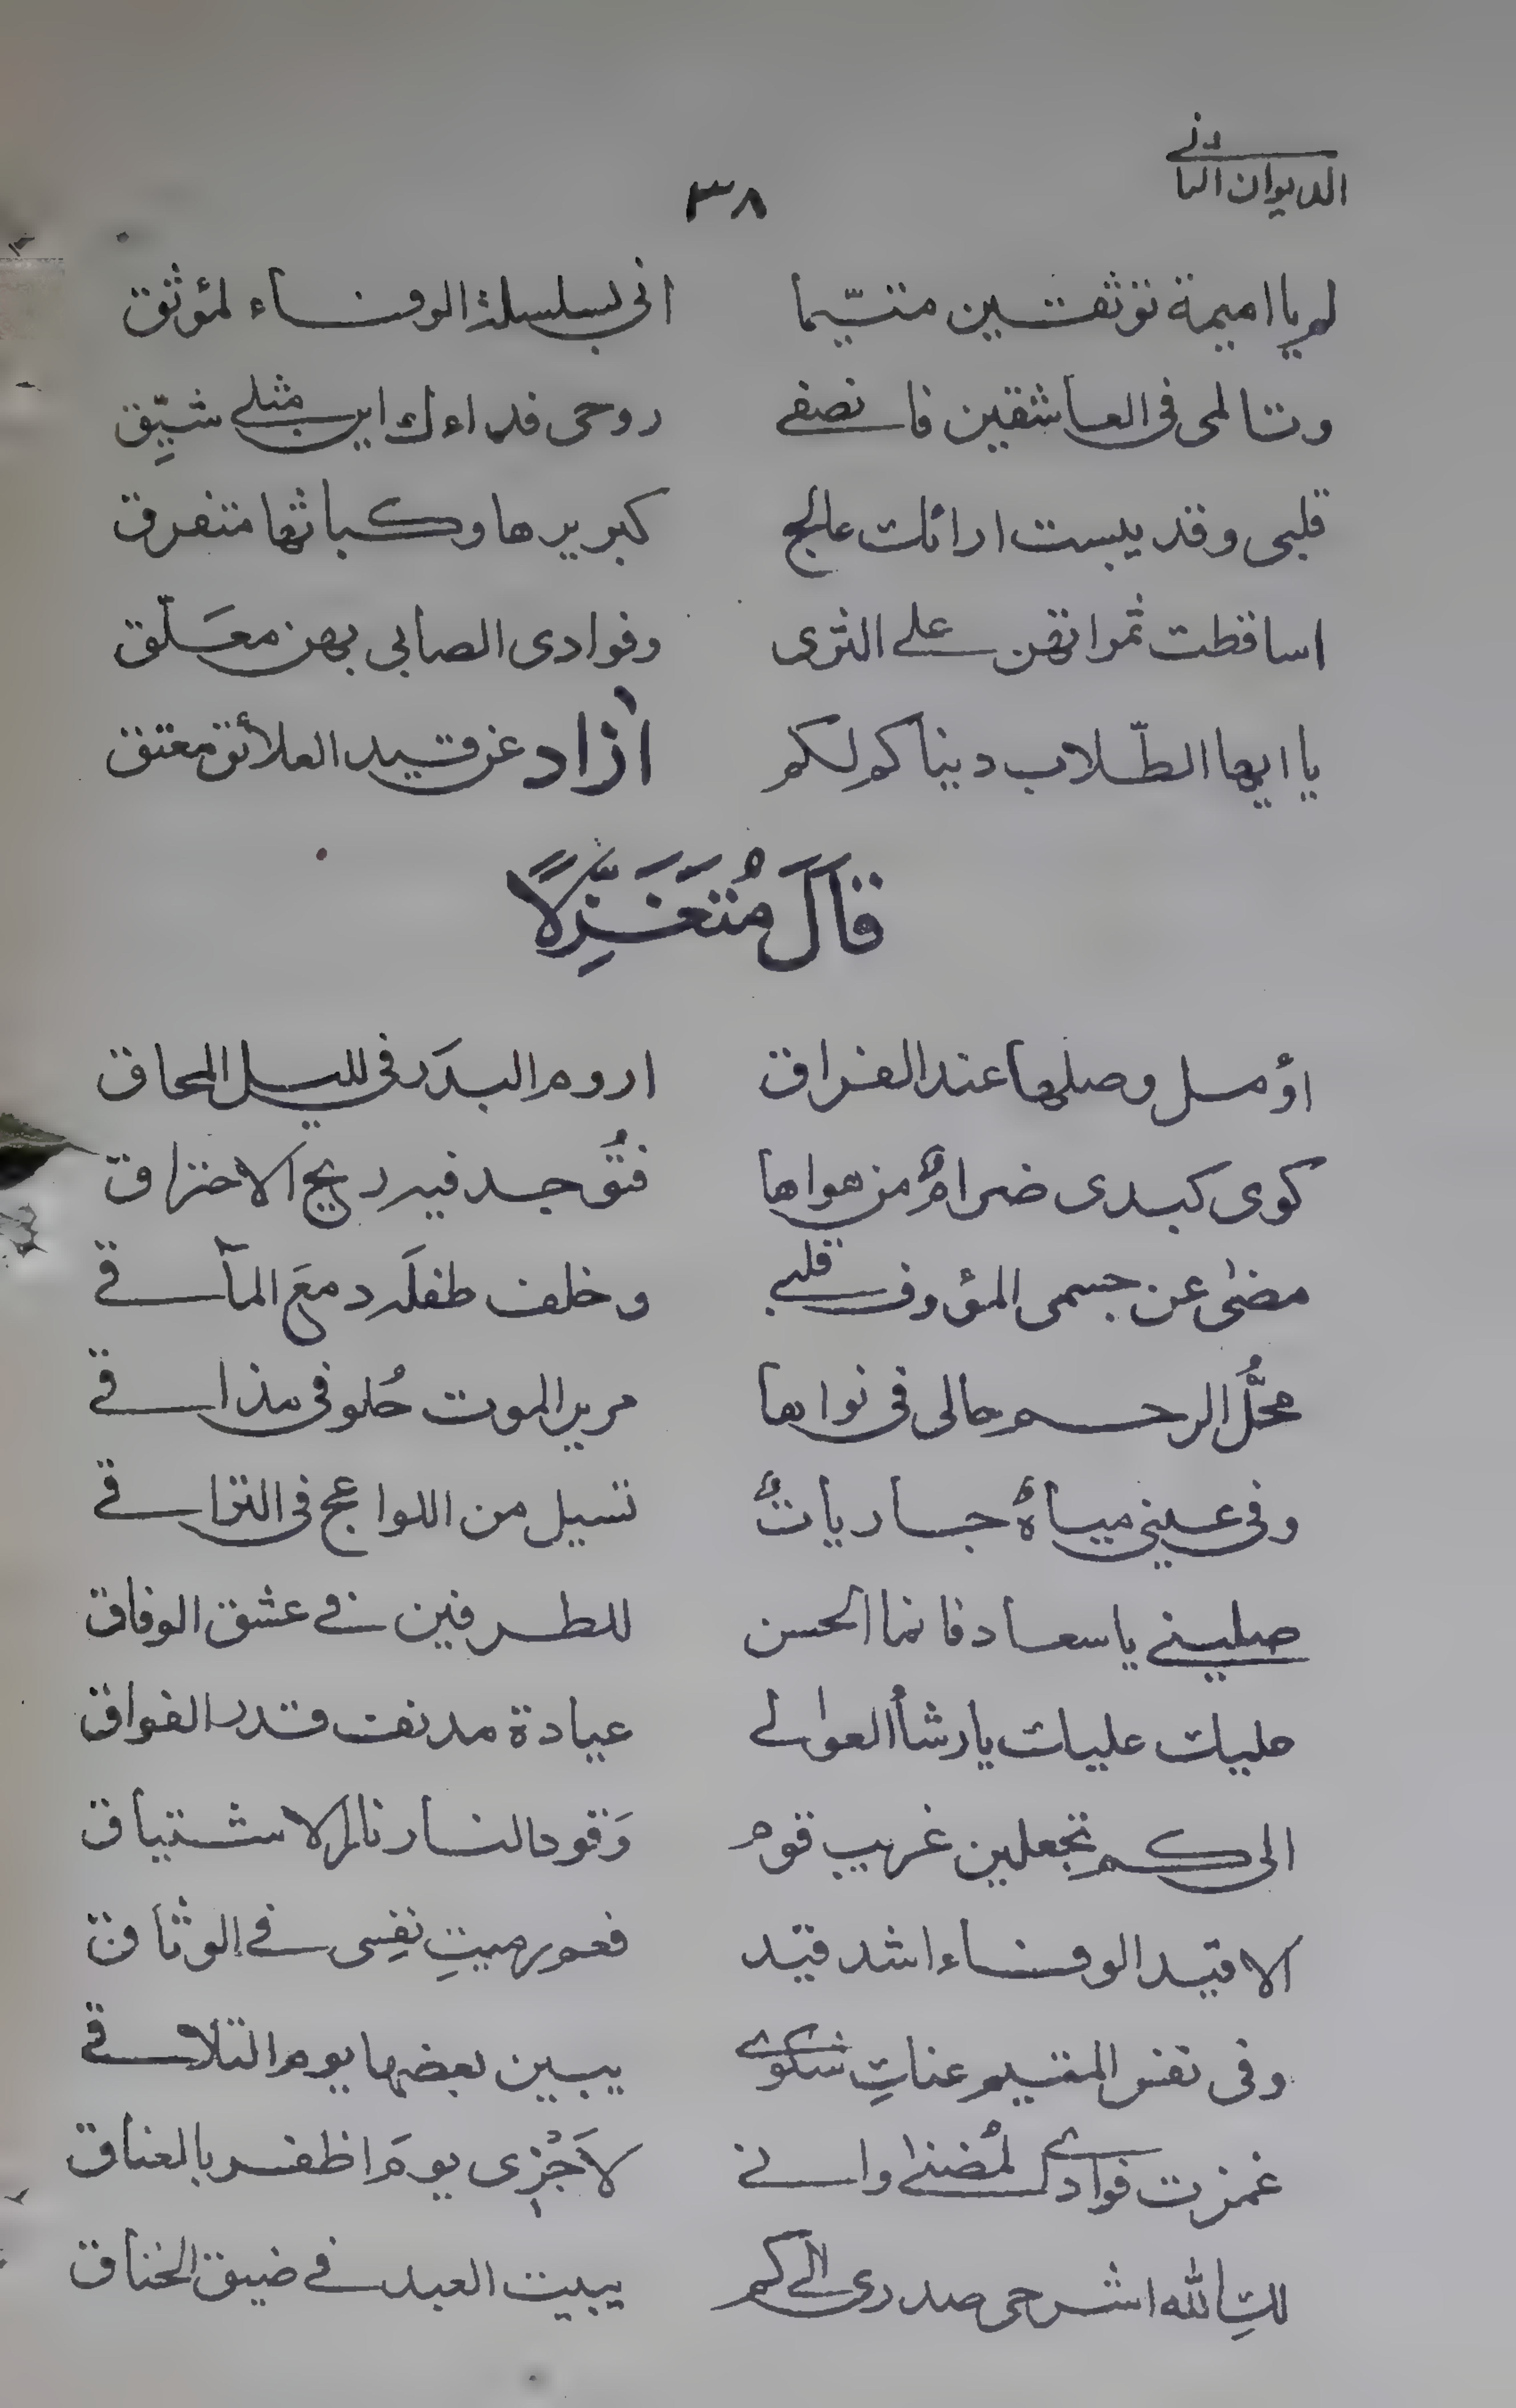 الديوان الثانى
٣٨
لم يا اميمة توثقين متيّما انى بسلسلة الوفاء لمؤثق
وتنالمى فى العاشقين فانصفى روحى فداءك اين مثلى شيِّق
قلبى وقد يبست ارائك عالج كبريرها وكباثها متفرق
اساقطت ثمراتهن على الثرى وفوادى الصابى بهن معَلّق
يا ايها الطّلاب دنياكم لكم اٰزاد عن قيد العلائق معتق
قَالَ مُتَغَزِّلًا
اؤمل وصلها عند الفراق اروم البدَر فى لليل المحاق
كوى كبدى ضرامٌ من هواها فتُوجد فيه ريح الاحتراق
مضىٰ عن جسمى المؤوف قلبى وخلف طفلَه دمعَ المآقى
محلُّ الرحم حالى فى نواها مرير الموت حُلو فى مذاقى
وفى عينى مياهٌ جارياتٌ تسيل من اللواعج فى التراقى
صلينى يا سعاد فانما الحسن للطرفين فى عشق الوفاق
عليك عليك يا رشأ العوالى عيادة مدنف قدر الفواق
الى كم تجعلين غريب قوم وَقودا لنار نار الاشتياق
الا قيد الوفاء اشد قيد فعم رميتِ نفِسى فى الوثاق
وفى نفس المتيم عناتِ شكوى يبين بعضها يوم التلاقى
غمزت فوادى لمُضنىٰ وانى لاَجْزِى يومَ اظفر بالعناق
لكِ الله اشرحى صدرى الى كم يبيت العبد فى ضيق الخناق